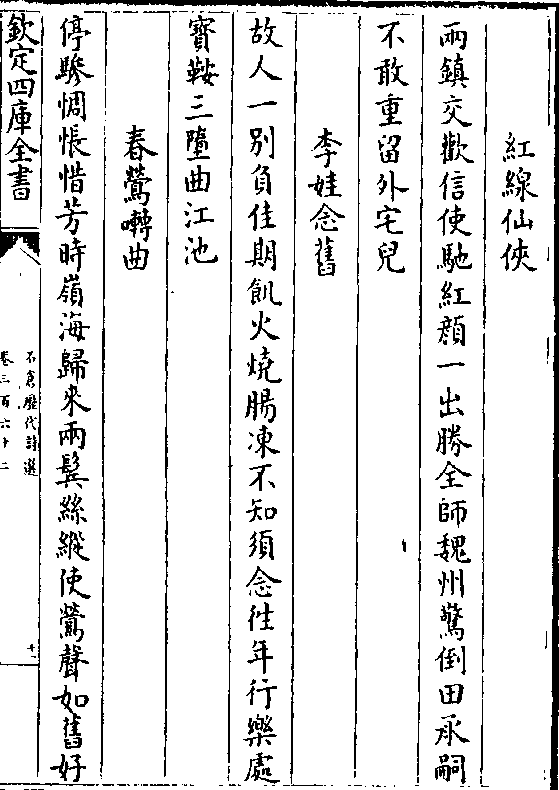 紅線仙俠
兩鎮交歡信使馳紅顔一出勝全師魏州驚倒田承嗣
不敢重留外宅兒
李娃念舊
故人一別負佳期飢火燒腸凍不知須念徃年行樂處
寶鞍三墮曲江池
春鶯囀曲
停驂惆悵惜芳時嶺海歸來兩鬂絲縱使鶯聲如舊好
欽定四庫全書
石倉歷代詩選
卷三百六十二